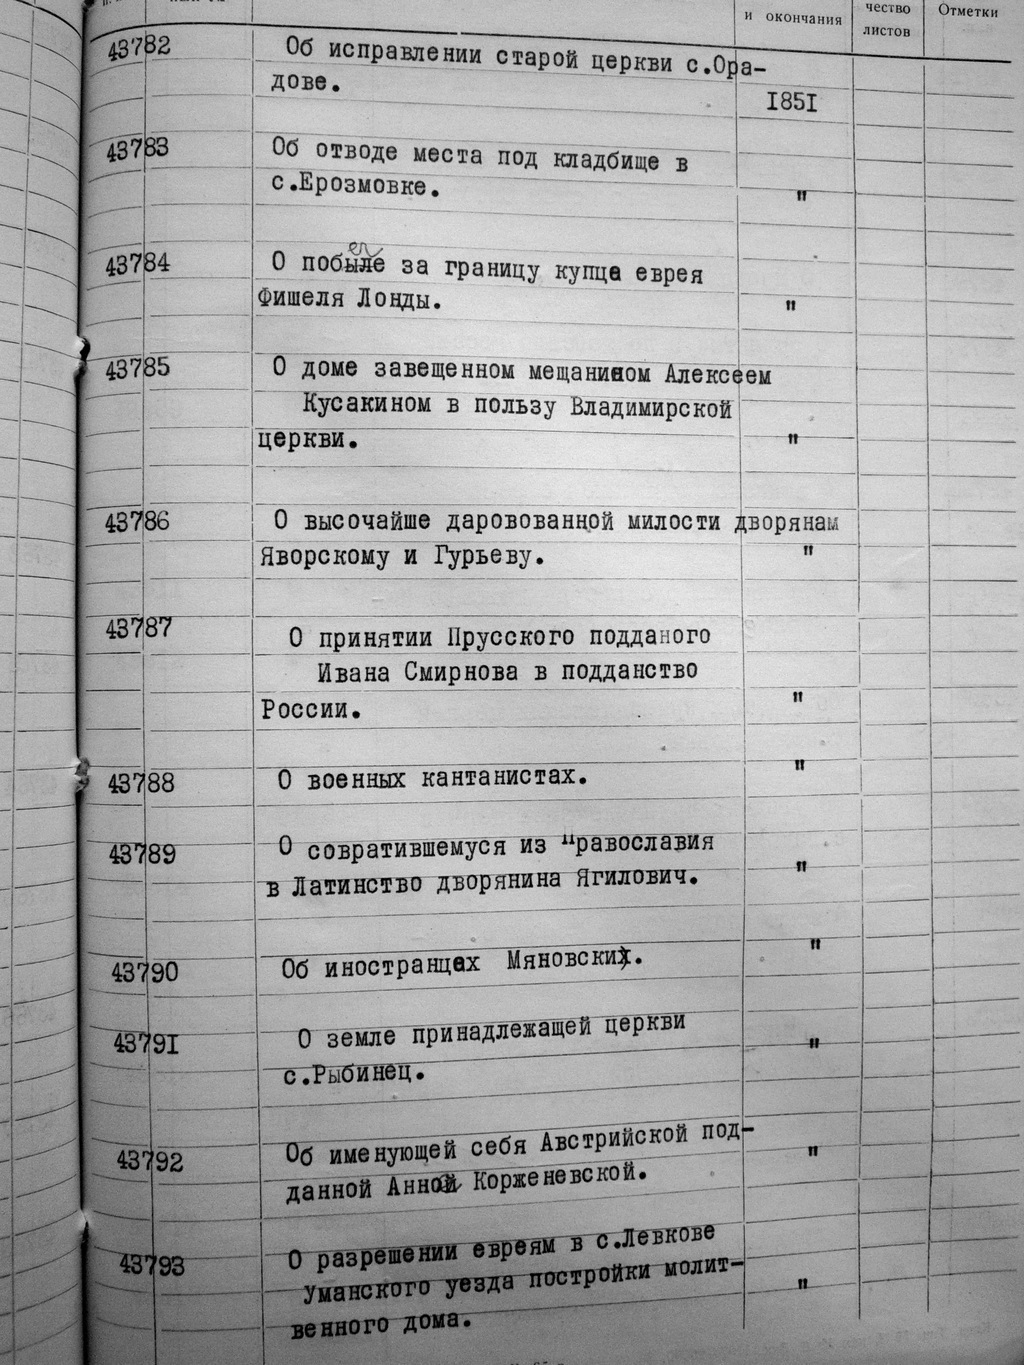 и окончания
чество
листов
Отметки
43782 Об исправлении старой церкви с.Ора-
дове.
I85I
43783 Об отводе места под кладбище в
с.Ерозмовке. "
43784 О побеле за границу купца еврея
Фишеля Лонды. "
43785 О доме завещенном мещанином Алексеем
Кусакином в пользу Владимирской
церкви. "
43786 О высочайше даровованной милости дворянам
Яворскому и Гурьеву. "
43787 О принятии Прусского подданого
Ивана Смирнова в подданство
России. "
43788 О военных кантанистах. "
43789 О совратившемуся из Православия
в Латинство дворянина Ягилович. "
43790 Об иностранцах Мяновских. "
4379I О земле принадлежащей церкви
с.Рыбинец. "
43792 Об именующей себя Австрийской под-
данной Анной Корженевской. "
43793 О разрешении евреям в с.Левкове
Уманского уезда постройки молит-
венного дома. "